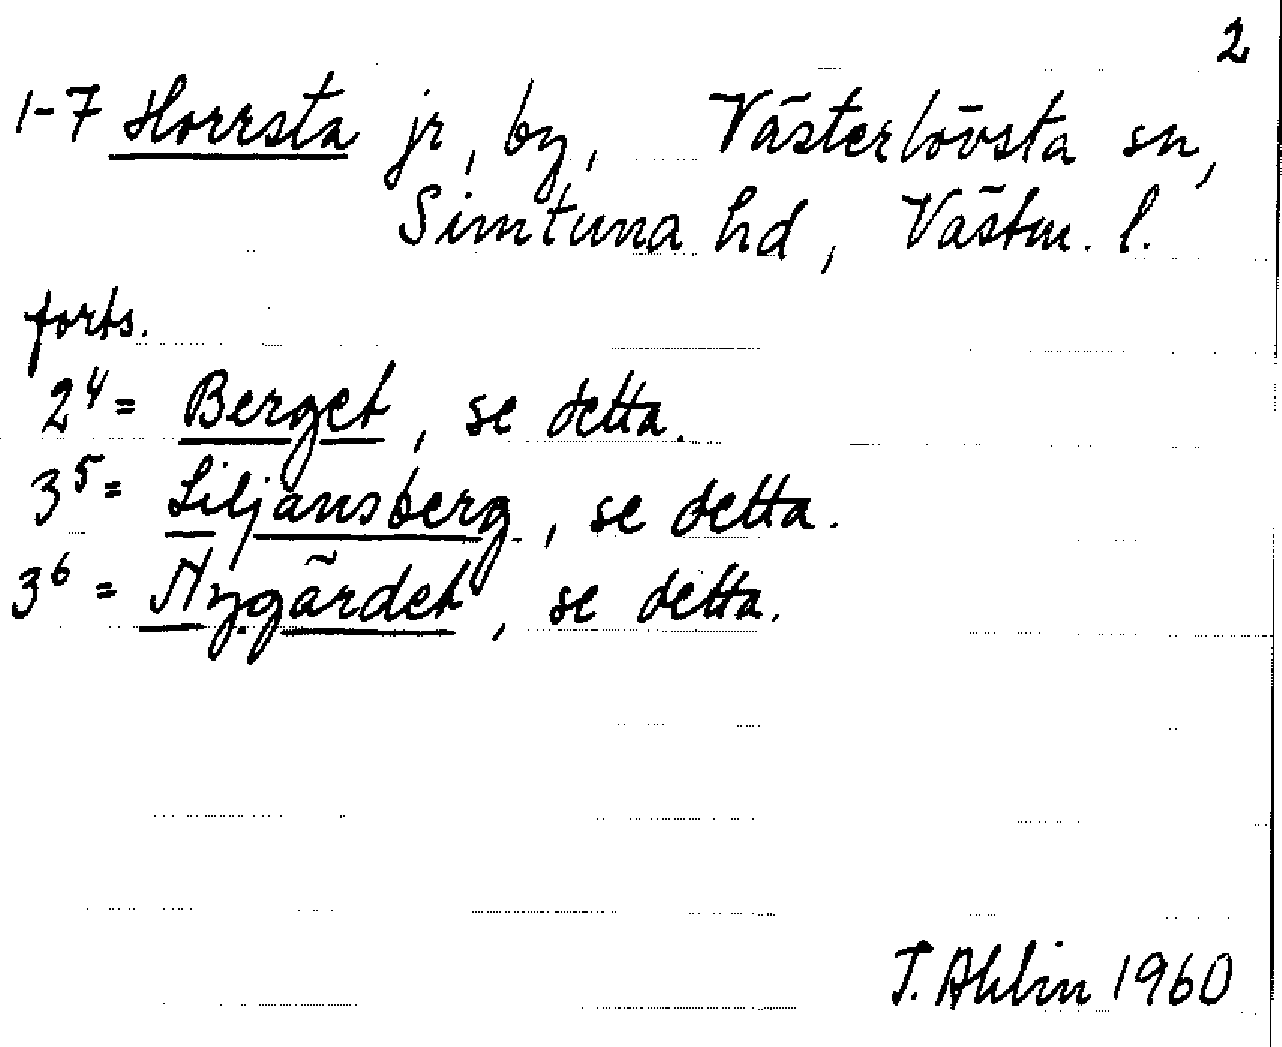 2
1-7 Horrsta jr, by, Västerlövsta sn,
Simtuna hd, Västm. l.
forts.
2⁴ = Berget, se detta.
3⁵ = Liljansberg, se detta.
3⁶ = Nygärdet, se detta.
T. Ahlin 1960